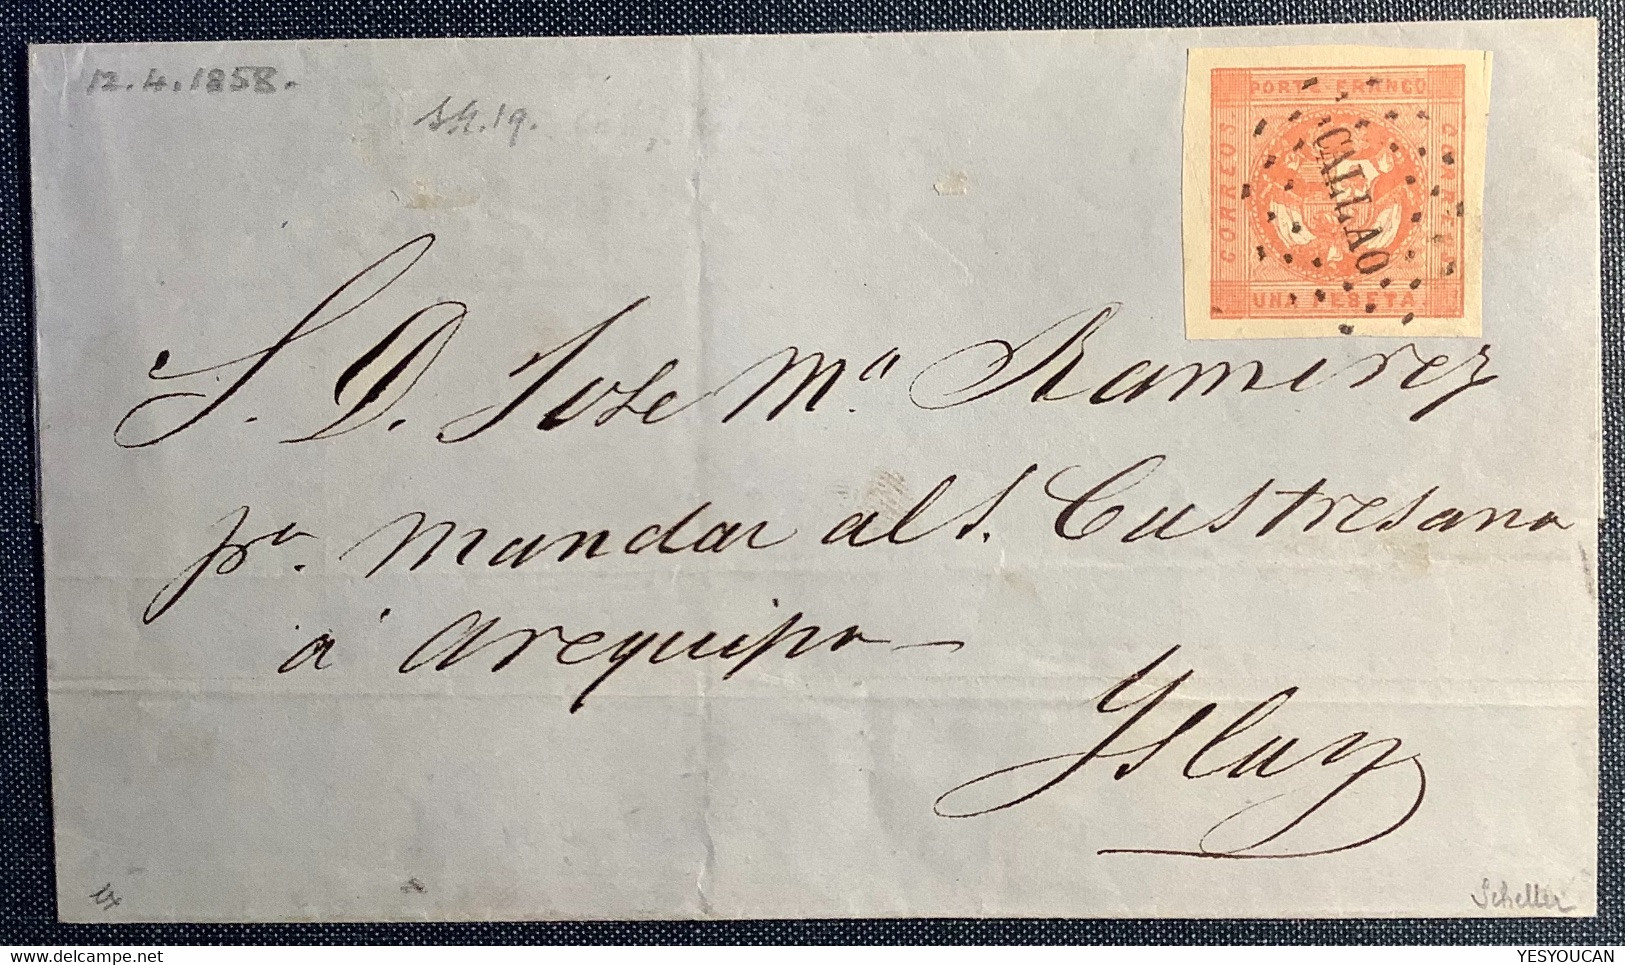 12.4.1858.
PORTE FRANCO
CORREOS
CORREOS
UNA PESETA.
CALLAO
S. D. Jose Mª Ramirez
pª. mandar al S. Castresana
á Arequipa
Yslay
Scheller
YESYOUCAN